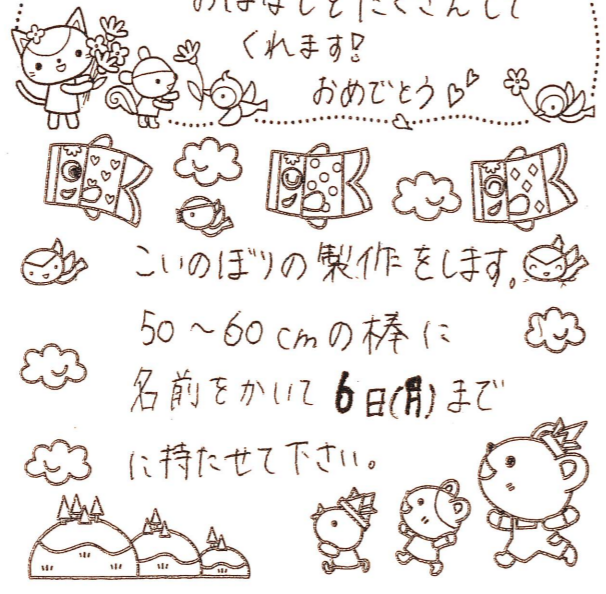 おはなしをたくさんして
くれます!
おめでとう
こいのぼりの製作をします。
50～60cmの棒に
名前をかいて6日(月)まで
に持たせて下さい。